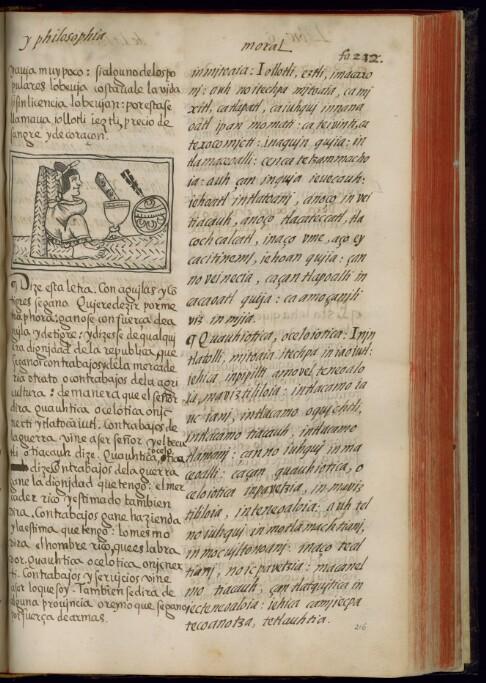 y philosophia
moral
fo 212.
yauja muy poco: si alguno de los po
pulares lo beuja costauale la vida
si sin licencia lo beujan: por esta se
llamaua, iollotli ieztli, precio de
sangre y de coraçon.
¶ Dize esta letra. Con aguilas y cõ
tigres se gano. Quiere dezir por me
taphora: ganose con fuerça de a
gujla, y de tigre: y dizese de qualqui
era dignidad de la republica, que
se gano con trabajos de la mercade
ria o trato o contrabajos de la agri
cultura: de manera que el señor
dira quauhtica ocelotica onic
nextli yn tlatocaiutl. Contrabajos de
la guerra vine a ser señor y el tecu
tli o tiacauh dize. Quauhtica, ocelo
dize Contrabajos de la guerra
gane la dignidad que tengo: el mer
cader rico y estimado tambien
dira. Contrabajos gane hazienda
y la estima que tengo: lo mesmo
dira el hombre rico, que es labra
dor. Quauhtica ocelotica onicnex
ti. Contrabajos y serujcios vine
a ser lo que soy. Tambien se dira de
alguna proujncia o reyno que se gano
por fuerça de armas.
in mitoaia: Iollotli, eztli, imacaxo
nj: auh no itechpa mitoaia, ca mi
xitl, ca tlapatl, ca iuhquj in nana
catl ipan momati: ca teivinti, ca
texocomjcti: in aqujn quja: in
tlamaceoalli: cenca tetzammacho
ia: auh çan inquja ieuecauh:
iehoatl in tlatoanj, anoço in vei
tiacauh, anoço tlacateccatl, tla
cochcalcatl, inaço vme, aço ey
cacitinemj, iehoan quija: çan
no vei necia, ca çan tlapoalli in
cacaoatl quija: ca amo çan ilj
viz in mjia.
¶ Quauhiotica, oceloiotica: Inin
tlatolli, mitoaia itechpa in iaoiutl:
iehica in pipilti amo vel teneoalo
ia, maviztililoia: intlacamo ia
uc ianj, intlacamo oquichtli,
intlacamo tiacauh, intlacamo
tlamanj: çan no iuhquj in ma
ceoalli: ca çan quauhiotica, o
celoiotica in pavetzia, in maviz
tililoia, in teneoaloia: auh vel
no iuhquj in motlamachtianj,
in mocujltonoanj: inaço tecal
tianj, no ic pavetzia: macanel
mo tiacauh, çan tlatqujtica in
iecteneoaloia: iehica camjecpa
tecoanotza, tetlauhtia.
216